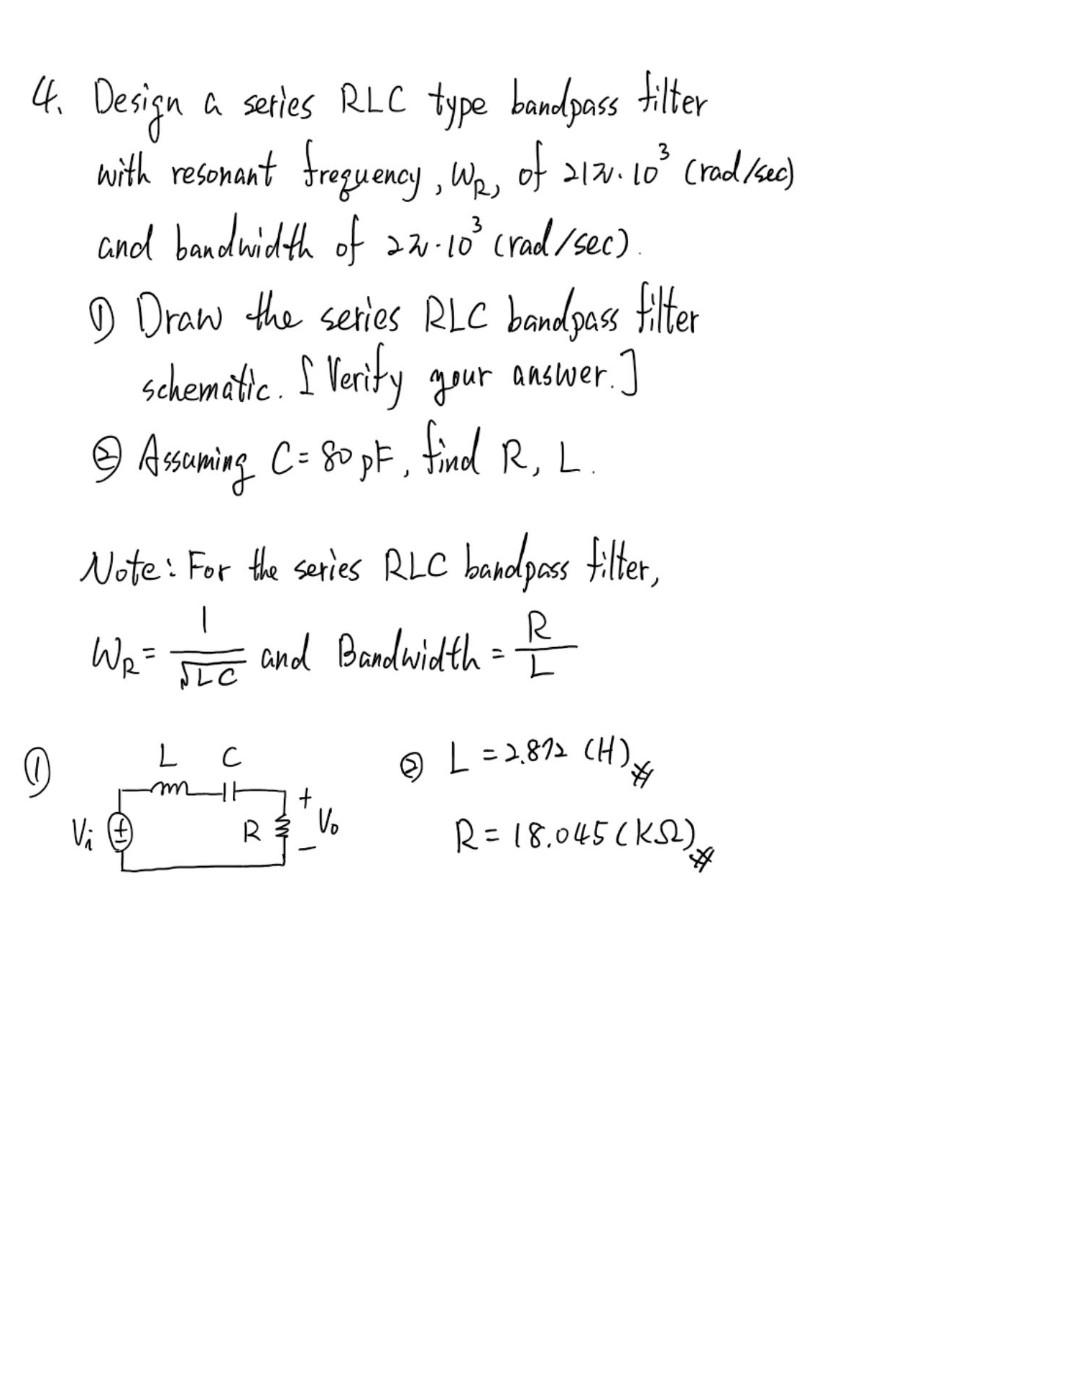 4. Design a series RLC type bandpass filter
with resonant frequency, WR, of 21π·10³ (rad/sec)
and bandwidth of 2π·10³ (rad/sec).
① Draw the series RLC bandpass filter
schematic. [Verify your answer.]
② Assuming C = 80 pF, find R, L.
Note: For the series RLC bandpass filter,
WR = 1/√LC and Bandwidth = R/L
①
L C
Vi ± R + Vo −
② L = 2.872 (H)#
R = 18.045 (KΩ)#